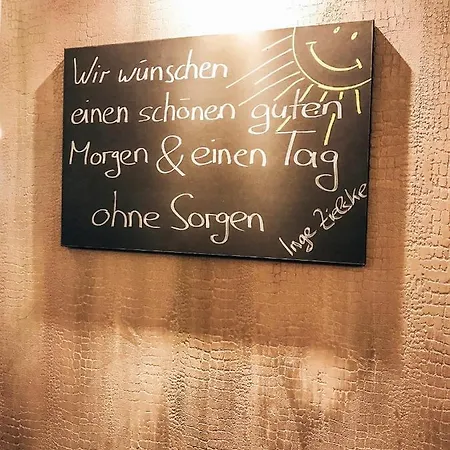 Wir wünschen
einen schönen guten
Morgen & einen Tag
ohne Sorgen
Inge Zielske